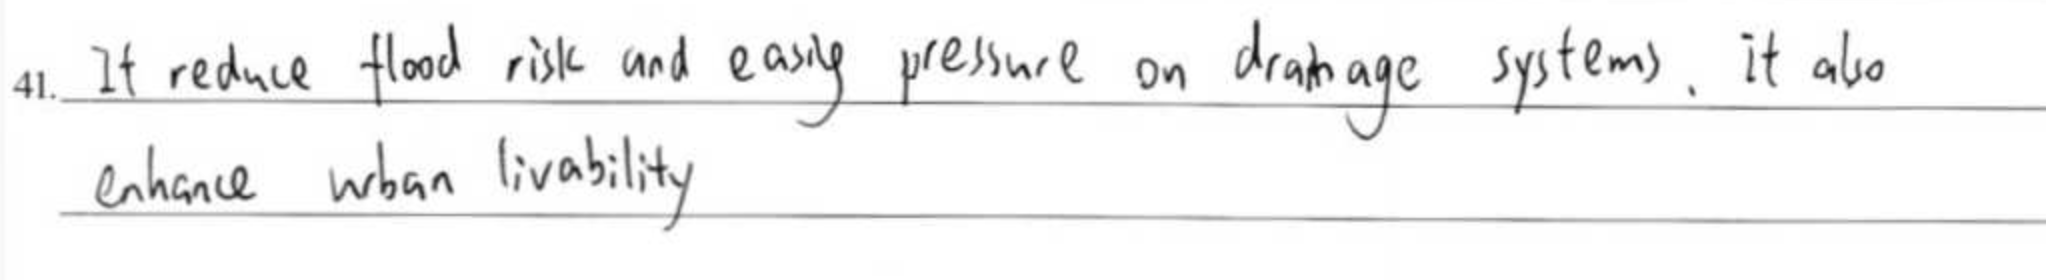 41. It reduce flood risk and easily pressure on drainage systems. it also
enhance urban livability